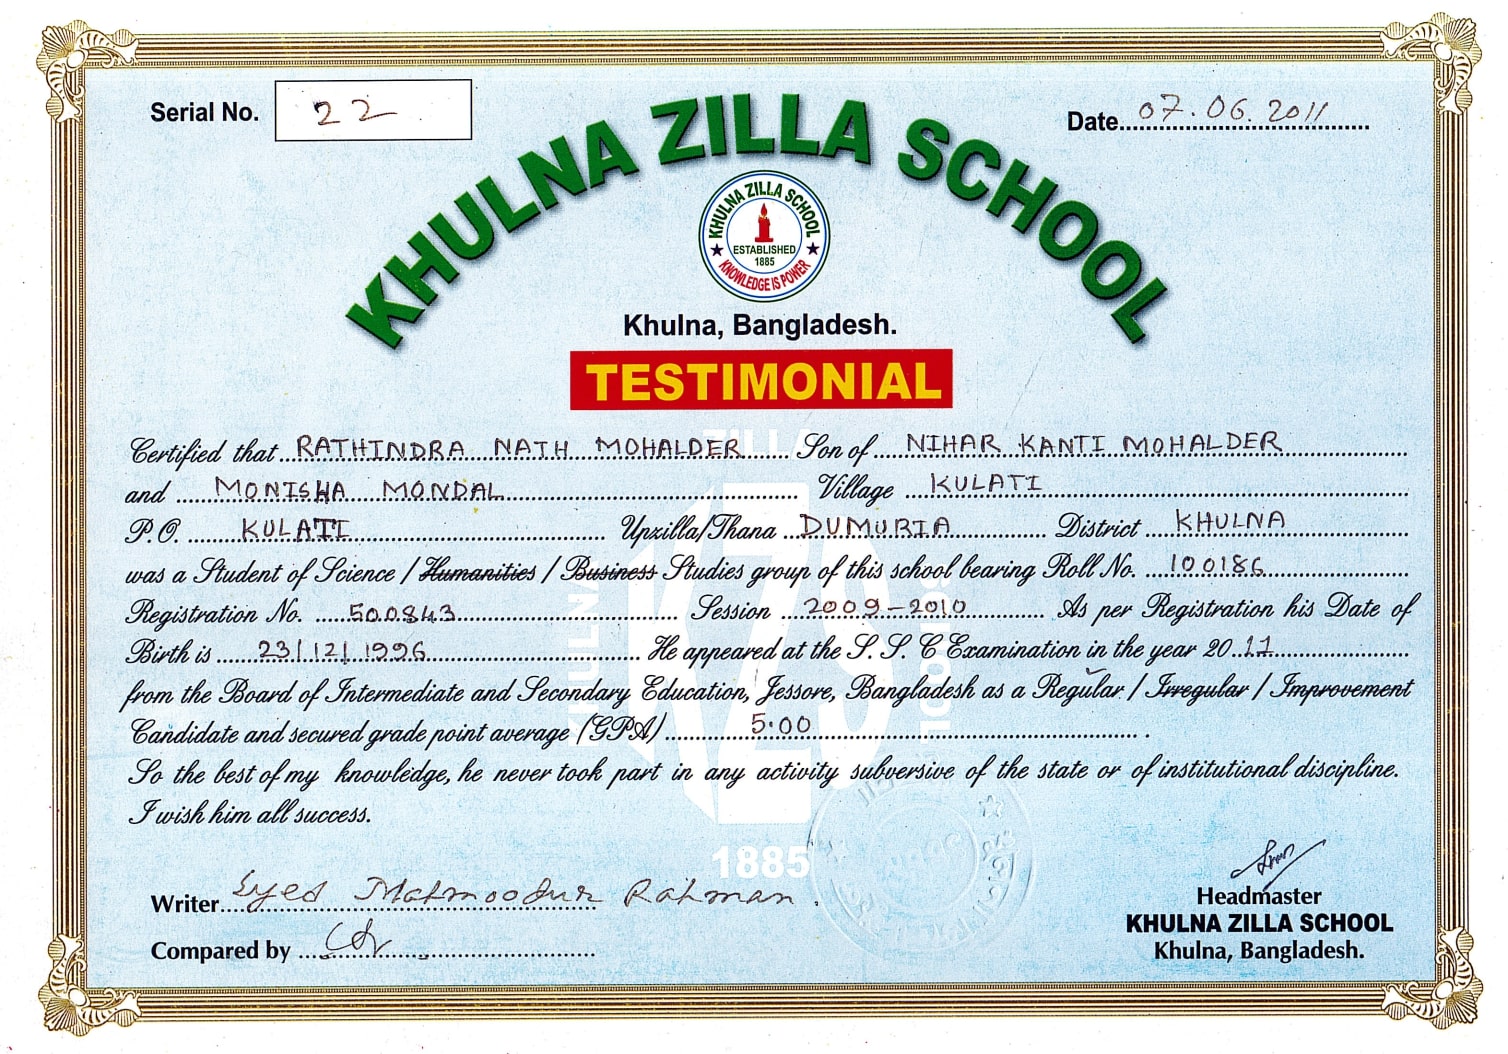 Serial No. 22
Date 07.06.2011
KHULNA ZILLA SCHOOL
KHULNA ZILLA SCHOOL
ESTABLISHED
1885
KNOWLEDGE IS POWER
Khulna, Bangladesh.
TESTIMONIAL
Certified that RATHINDRA NATH MOHALDER Son of NIHAR KANTI MOHALDER
and MONISHA MONDAL Village KULATI
P.O. KULATI Upzilla/Thana DUMURIA District KHULNA
was a Student of Science / Humanities / Business Studies group of this school bearing Roll No. 100186
Registration No. 500843 Session 2009-2010 As per Registration his Date of
Birth is 23/12/1996 He appeared at the S. S. C Examination in the year 2011
from the Board of Intermediate and Secondary Education, Jessore, Bangladesh as a Regular / Irregular / Improvement
Candidate and secured grade point average (GPA) 5.00 .
So the best of my knowledge, he never took part in any activity subversive of the state or of institutional discipline.
I wish him all success.
1885
Writer Syed Mahmoodur Rahman.
Compared by
Headmaster
KHULNA ZILLA SCHOOL
Khulna, Bangladesh.